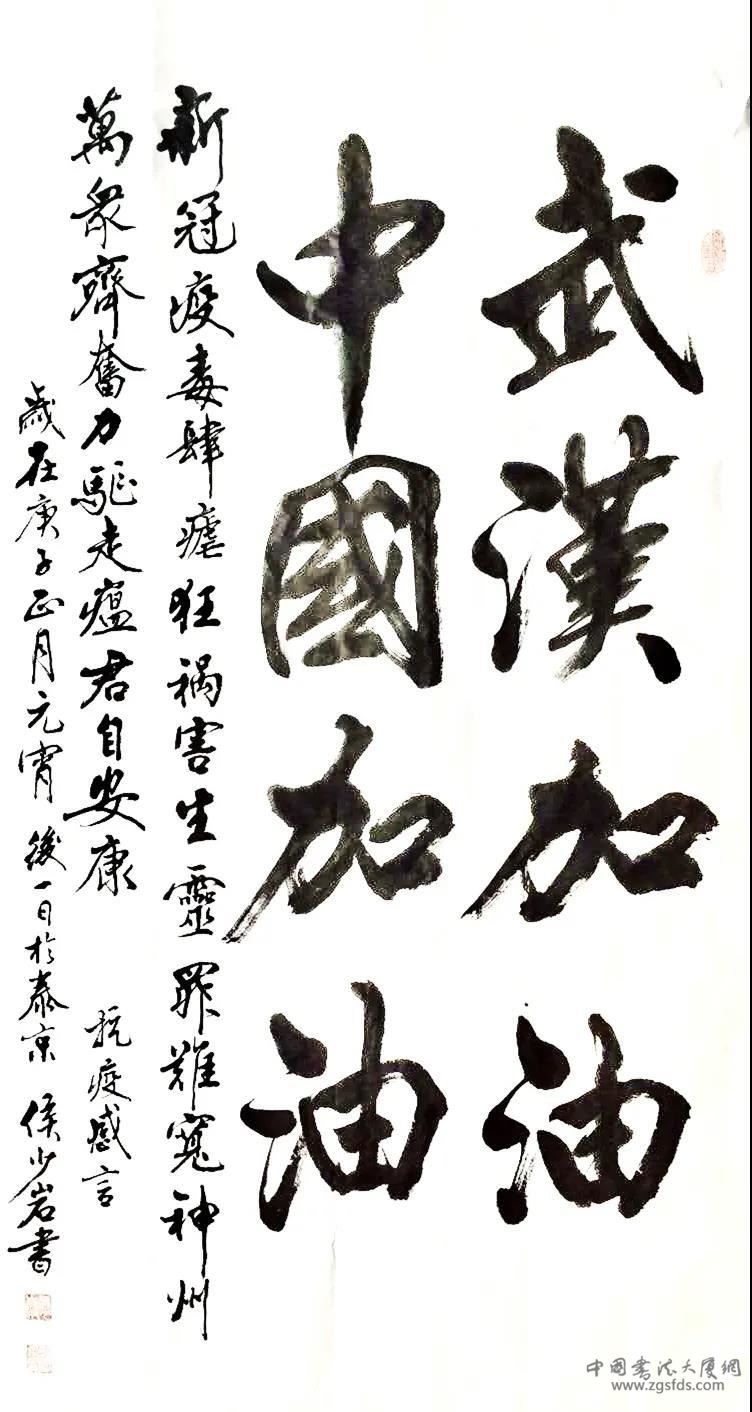 武漢加油
中國加油
新冠疫毒肆瘧狂禍害生靈罪難寬神州
萬眾齊奮力驅走瘟君自安康
抗疫感言
歲在庚子正月元宵後一日於泰京 侯少岩書
中国书法大厦網
www.zgsfds.com